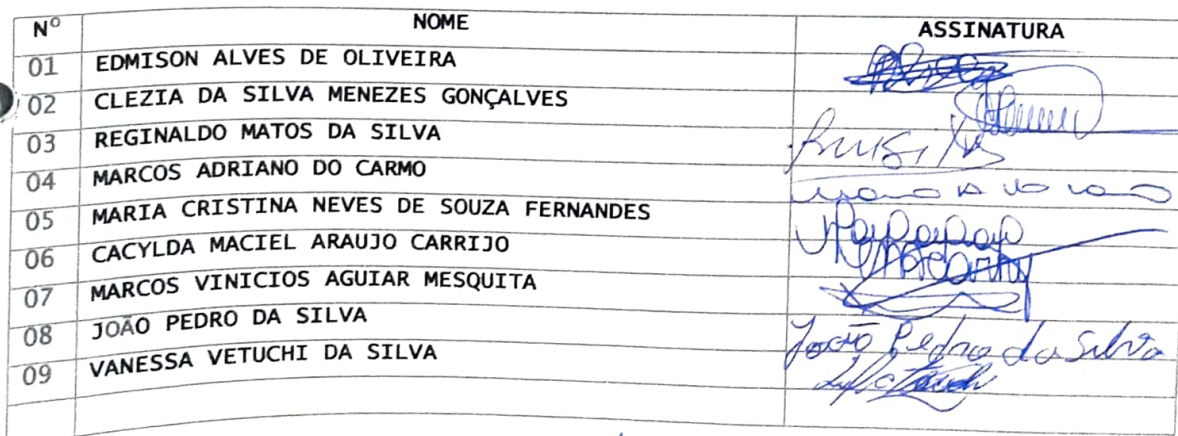 Nº NOME ASSINATURA
01 EDMISON ALVES DE OLIVEIRA
02 CLEZIA DA SILVA MENEZES GONÇALVES
03 REGINALDO MATOS DA SILVA
04 MARCOS ADRIANO DO CARMO
05 MARIA CRISTINA NEVES DE SOUZA FERNANDES
06 CACYLDA MACIEL ARAUJO CARRIJO
07 MARCOS VINICIOS AGUIAR MESQUITA
08 JOÃO PEDRO DA SILVA João Pedro da Silva
09 VANESSA VETUCHI DA SILVA